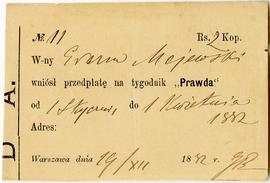 № 11 Rs. 2 Kop.
W-ny Erazm Majewski
wniósł przedpłatę na tygodnik „Prawda"
od 1 Stycznia do 1 Kwietnia
Adres: 1882
Warszawa dnia 19/XII 1882
D A.